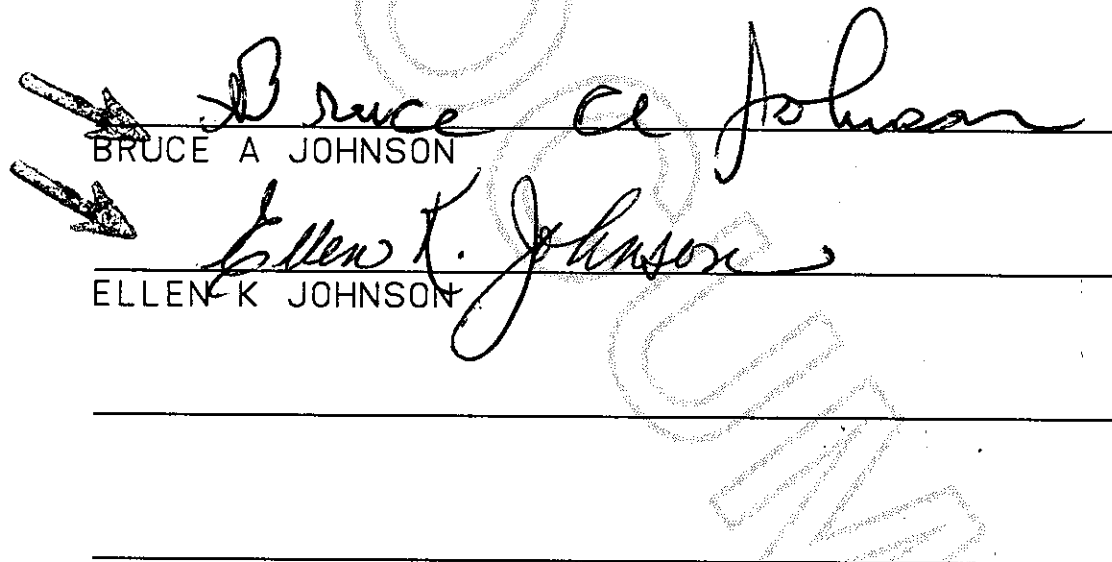 Bruce A Johnson
BRUCE A JOHNSON
Ellen K. Johnson
ELLEN K JOHNSON